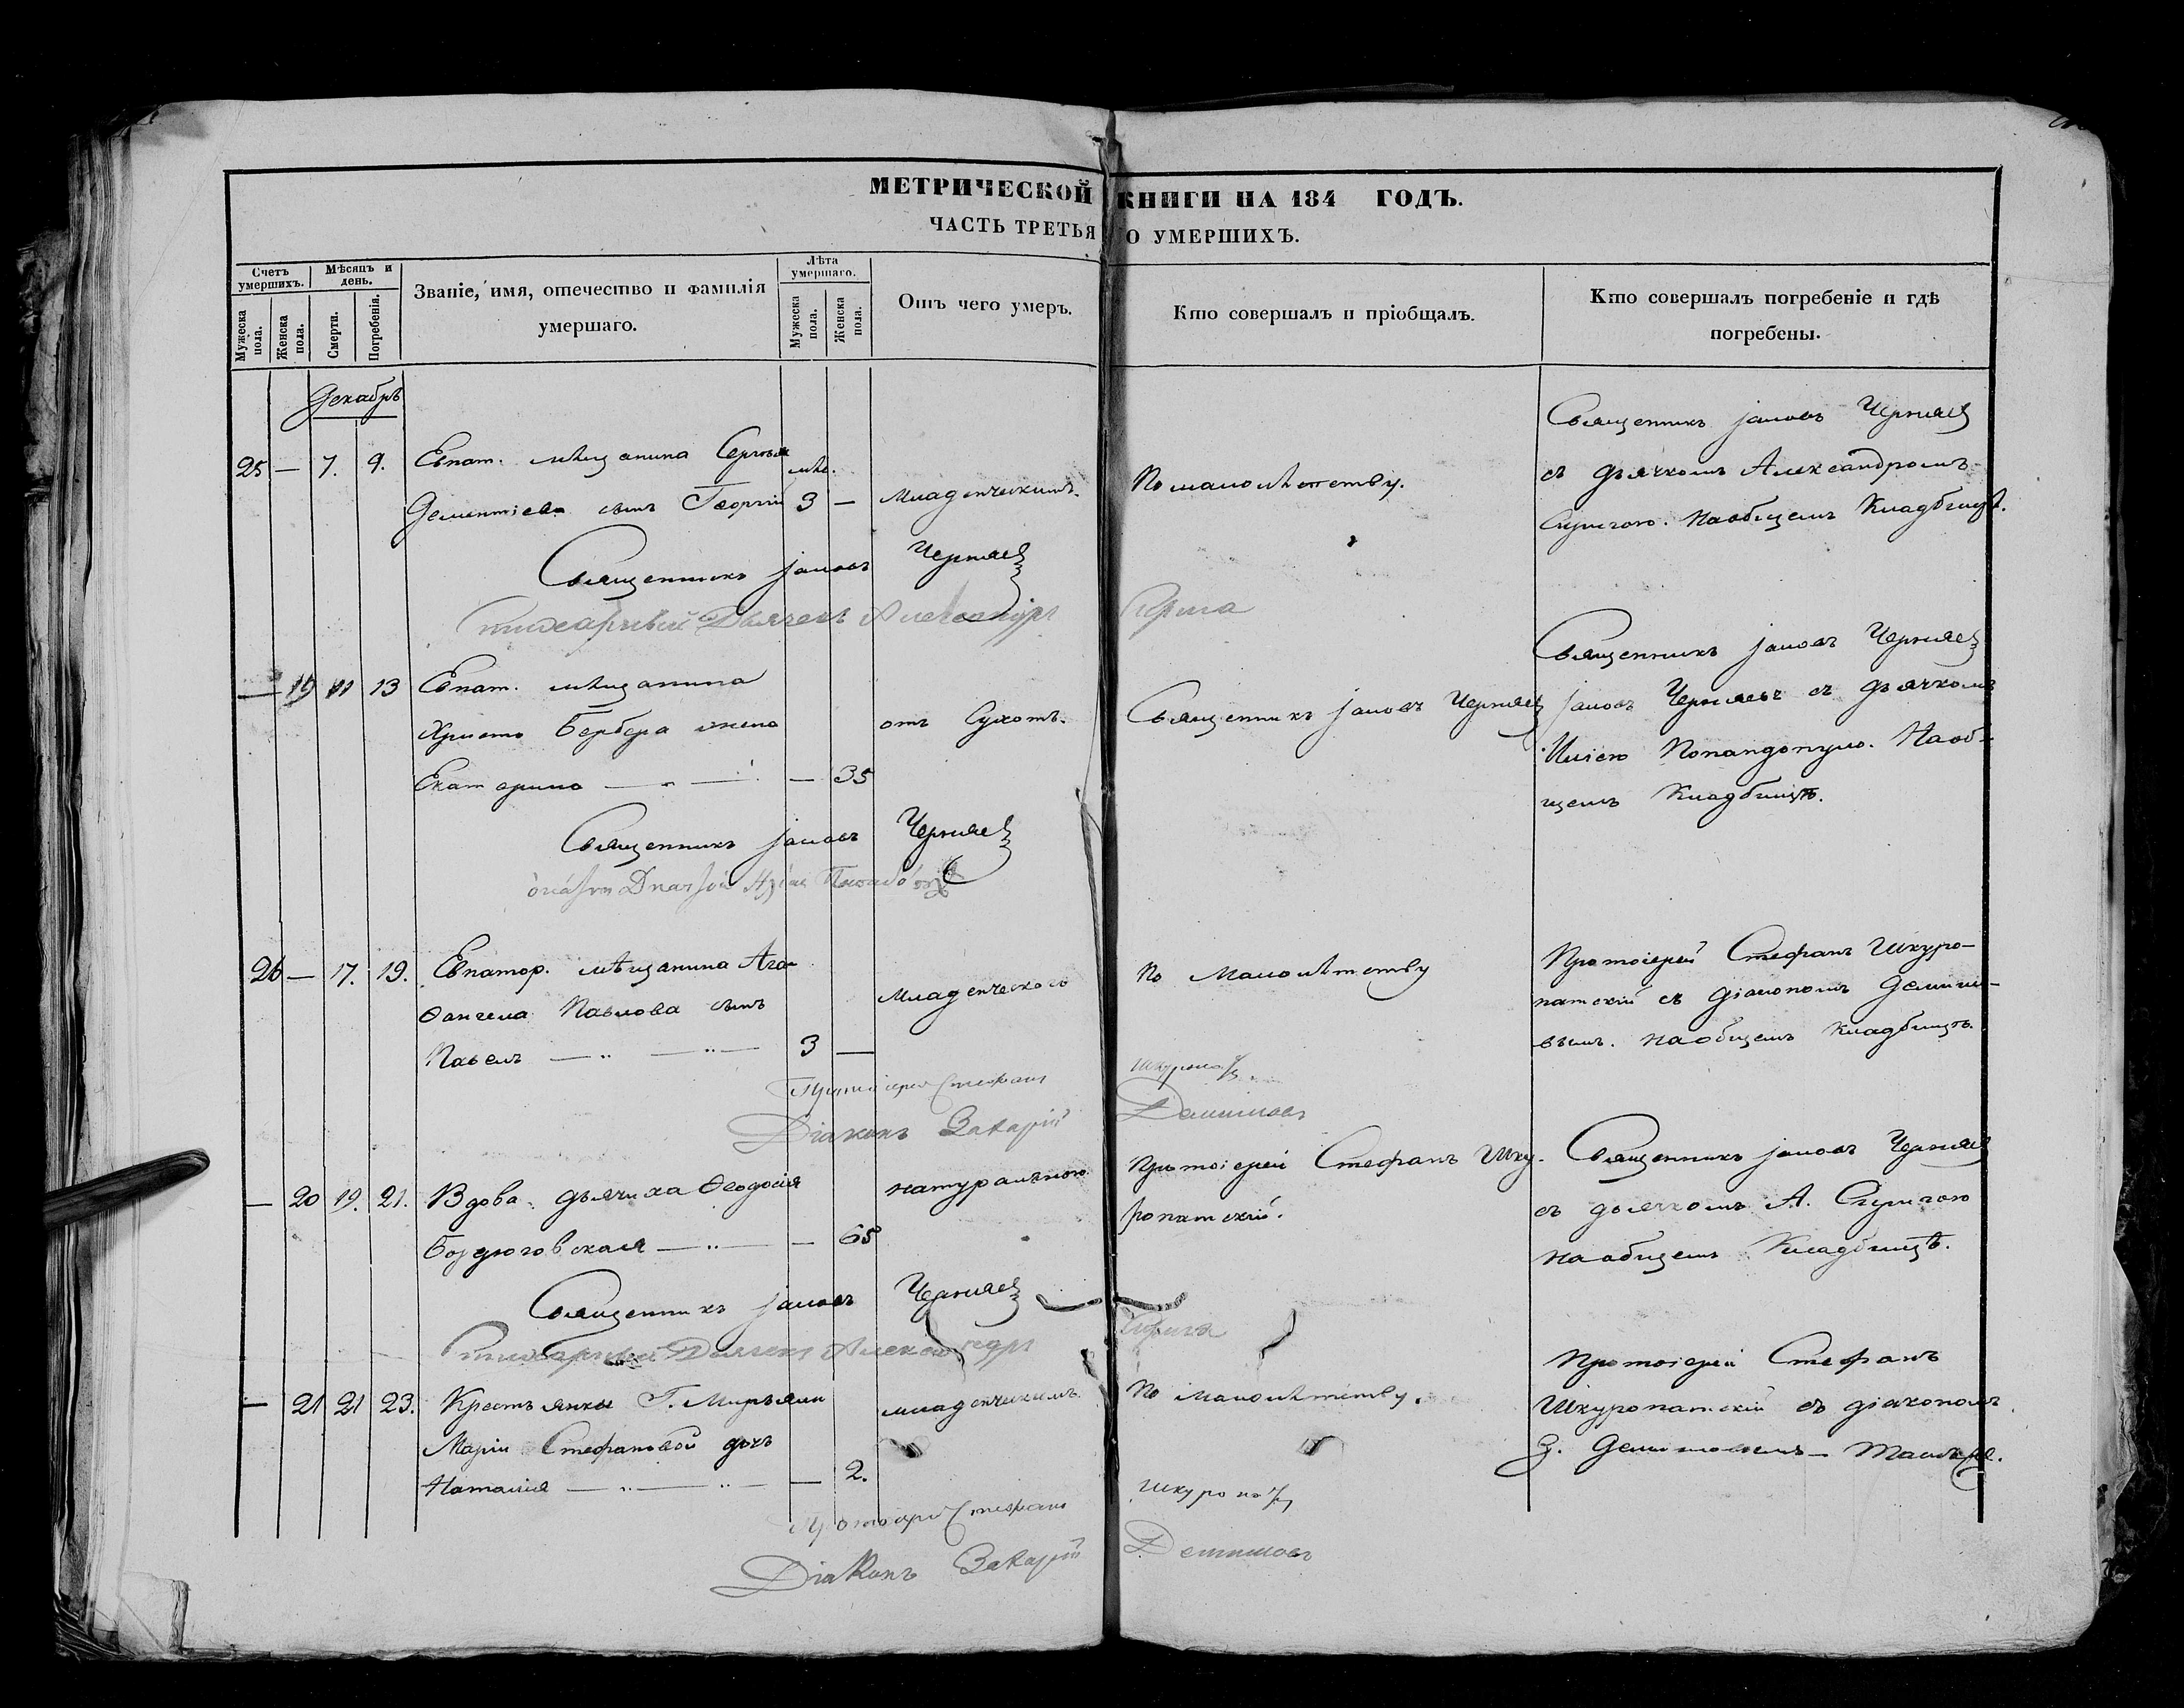 МЕТРИЧЕСКОЙ КНИГИ НА 184 ГОДЪ.
ЧАСТЬ ТРЕТЬЯ О УМЕРШИХЪ.
Счетъ умершихъ.
Мужеска пола.
Женска пола.
Мѣсяцъ и день.
Смерти.
Погребенія.
Званіе, имя, отечество и фамилія
умершаго.
Лѣта умершаго.
Мужеска пола.
Женска пола.
Отъ чего умеръ.
Кто совершалъ и пріобщалъ.
Кто совершалъ погребеніе и гдѣ
погребены.
Декабрь
25 — 7. 9. Евпат. мѣщанина Сергѣя
Дементіева сынъ Георгій 3 — Младенческимъ.
По малолѣтству.
Священникъ Іаковъ Черняев
съ дьячкомъ Александромъ
На общемъ Кладбищѣ.
Священникъ Іаковъ Черняев
Стихарный Дьячекъ Александръ
— 19 11 13 Евпат. мѣщанина
Христо Бербера жена отъ Сухотъ.
Екатерина — 35
Священникъ Іаковъ Черняев
Священникъ Іаковъ Черняев
Іаковъ Черняевъ съ дьячкомъ
Иліею Попандопуло. На об-
щемъ Кладбищѣ.
Священникъ Іаковъ Черняев
26 — 17. 19. Евпатор. мѣщанина Ага-
ѳангела Павлова сынъ Младенческою
Павелъ 3 —
По Малолѣтству
Протоіерей Стефанъ Шкуро-
патскій съ діакономъ Деминo-
вымъ. На общемъ Кладбищѣ.
Протоіерей Стефанъ
Діаконъ Захарій Деминовъ
— 20 19. 21. Вдова дьячиха Ѳеодосія натуральною
— 65
Протоіерей Стефанъ Шку-
ропатскій.
Священникъ Іаковъ Черняев
съ дьячкомъ А.
на общемъ Кладбищѣ.
Священникъ Іаковъ Черняев
Стихарный Дьячекъ Александръ
— 21 21 23. Крестьянки Г.
Маріи Стефановой дочь младенческимъ.
Наталія — 2.
По малолѣтству.
Протоіерей Стефанъ
Шкуропатскій съ діакономъ
З. Деминовымъ — тамъ же.
Протоіерей Стефанъ
Діаконъ Захарій Деминовъ